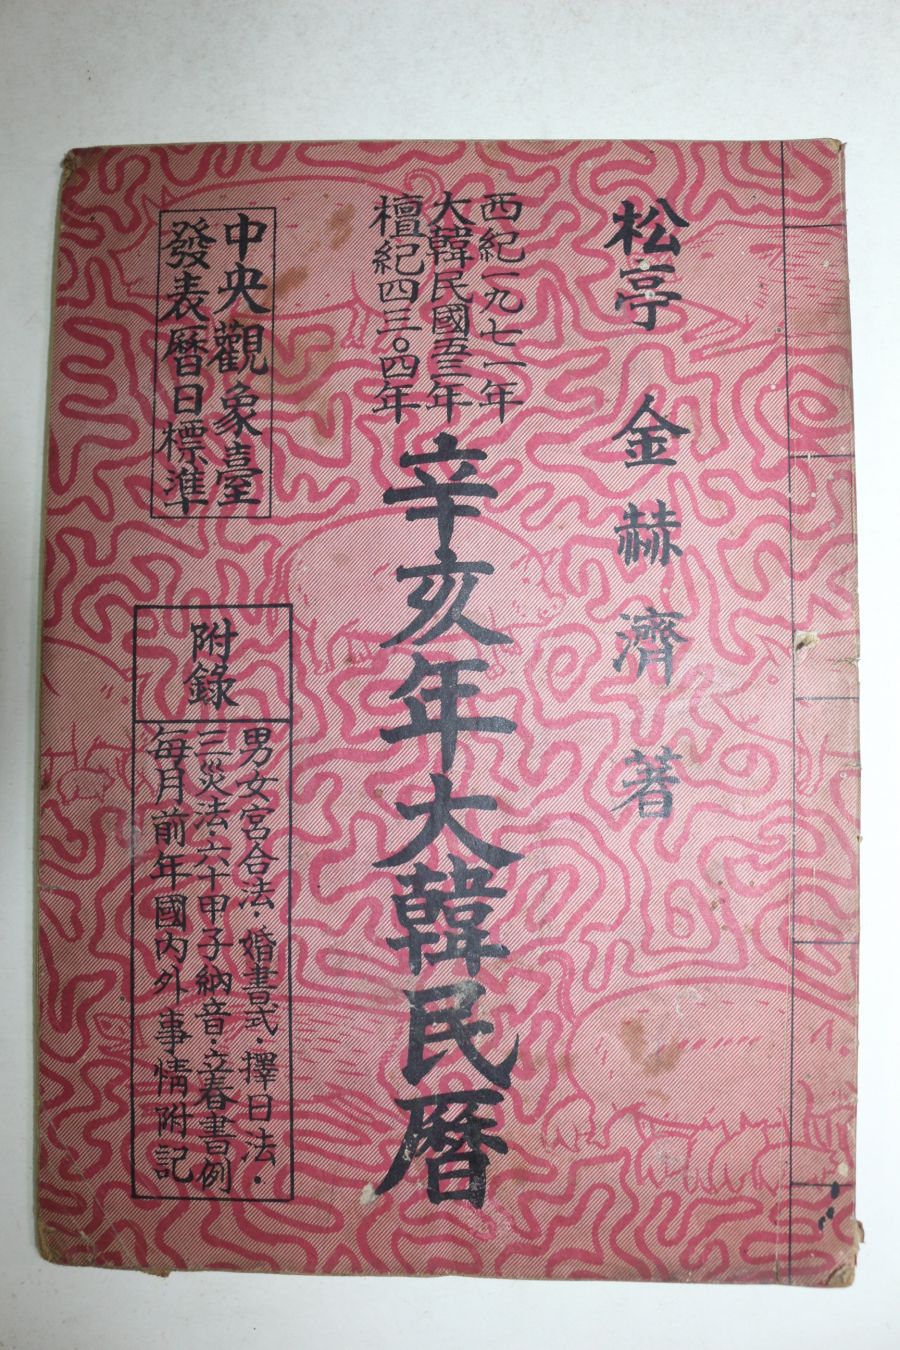 松亭 金赫濟 著
西紀一九七一年
大韓民國五三年
檀紀四三〇四年
辛亥年大韓民曆
中央觀象臺
發表曆日標準
附錄
男女宮合法·婚書式·擇日法·
三災法·六十甲子納音·立春書例
每月前年國內外事情附記